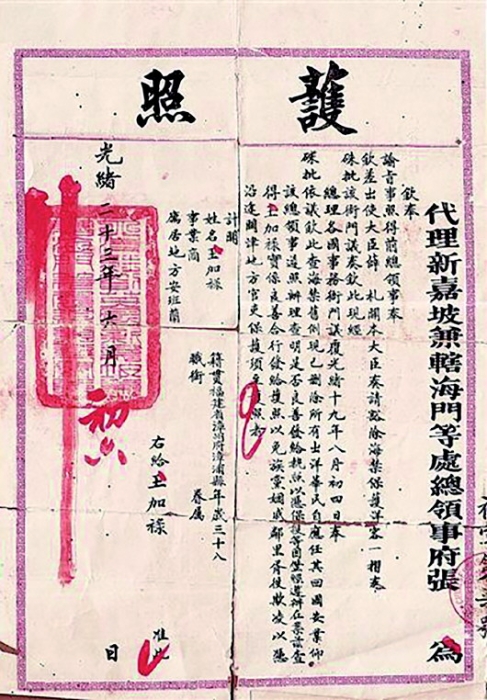 護照
代理新嘉坡兼轄海門等處總領事府張 為
欽奉
諭旨事照得前總領事奉
欽差出使大臣薛 札開本大臣奏請豁除海禁保護洋客一摺奉
硃批該衙門議奏欽此現經
總理各國事務衙門議覆光緒十九年八月初四日奉
硃批依議欽此查海禁舊例現已刪除所有出洋華民自應任其回國安業仰
該總領事遵照辦理查明是否良善發給執照以憑保護等因遵辦在案茲查
得王加祿實係良善合行發給護照以免族黨姻戚鄰里胥役欺凌以憑
沿途關津地方官吏保護須至照者
計開
姓名王加祿 籍貫福建省漳州府漳浦縣年歲三十八
事業商 職銜 眷屬
寓居地方安班蘭
右給王加祿 准此
光緒二十三年六月初六日